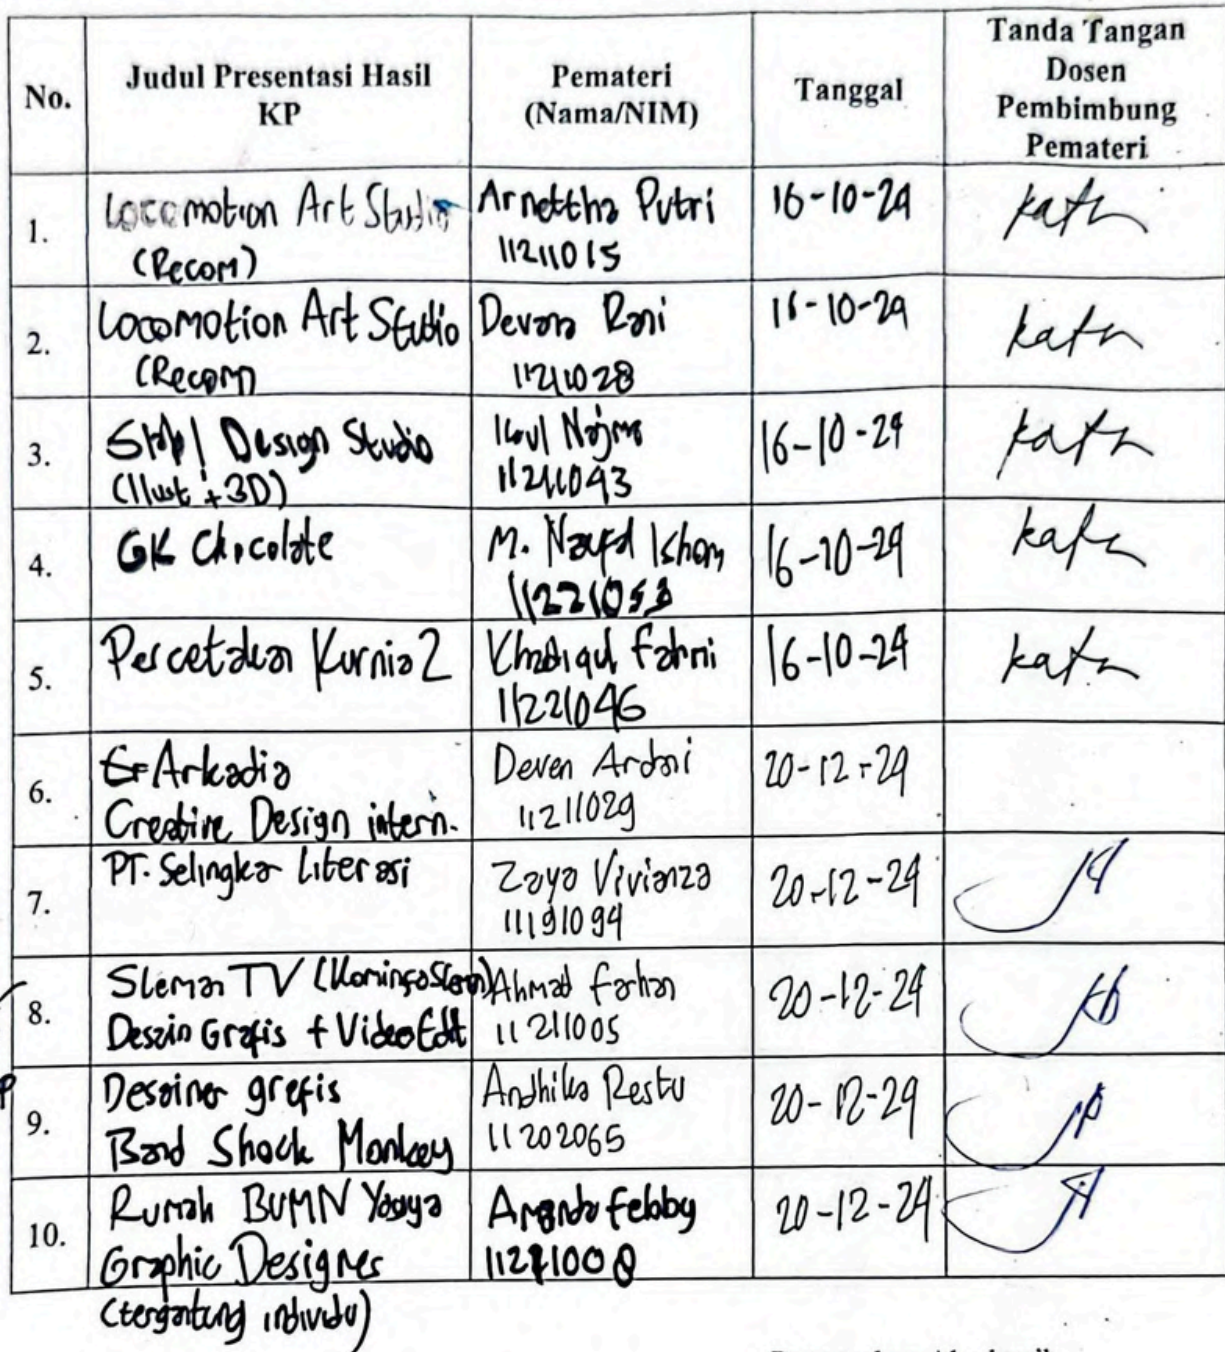 No.
Judul Presentasi Hasil
KP
Pemateri
(Nama/NIM)
Tanggal
Tanda Tangan
Dosen
Pembimbung
Pemateri
1.
Locomotion Art Studio
(Recom)
Arnettha Putri
11211015
16-10-24
2.
Locomotion Art Studio
(Recom)
Devana Rani
11211028
16-10-24
3.
Design Studio
(Illust + 3D)
Najma
11211043
16-10-24
4.
GK Chocolate
M. Naufal Isham
11221053
16-10-24
5.
Percetakan Kurnia 2
Khadiqul Fahmi
11221046
16-10-24
6.
Arkadia
Creative Design intern.
Deven Ardani
11211029
20-12-24
7.
PT. Selingkar Literasi
Zaya Vivianza
11191094
20-12-24
8.
Sleman TV (Kominfo Sleman)
Desain Grafis + Video Edit
Ahmad Farhan
11211005
20-12-24
9.
Desainer grafis
Band Shock Monkey
Andhika Restu
11202065
20-12-24
10.
Rumah BUMN Yogya
Graphic Designer
(tergantung individu)
Amanda Febby
11211008
20-12-24